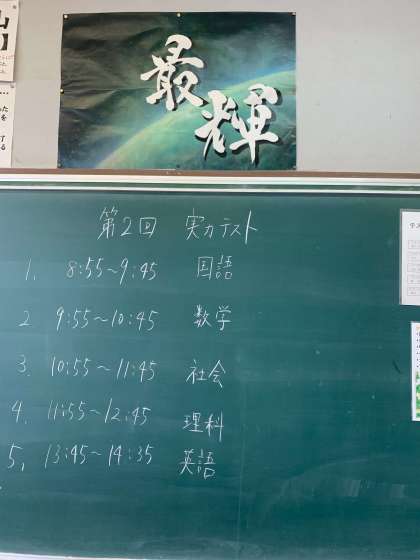 最輝
第2回 実力テスト
1. 8:55～9:45 国語
2 9:55～10:45 数学
3. 10:55～11:45 社会
4. 11:55～12:45 理科
5, 13:45～14:35 英語